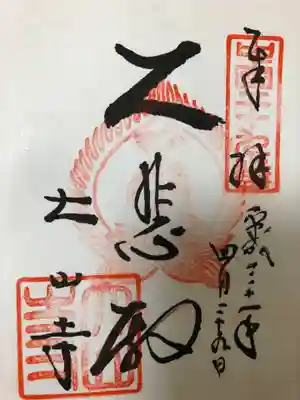 奉拝
平成三十一年
四月二十九日
大悲殿
大山寺